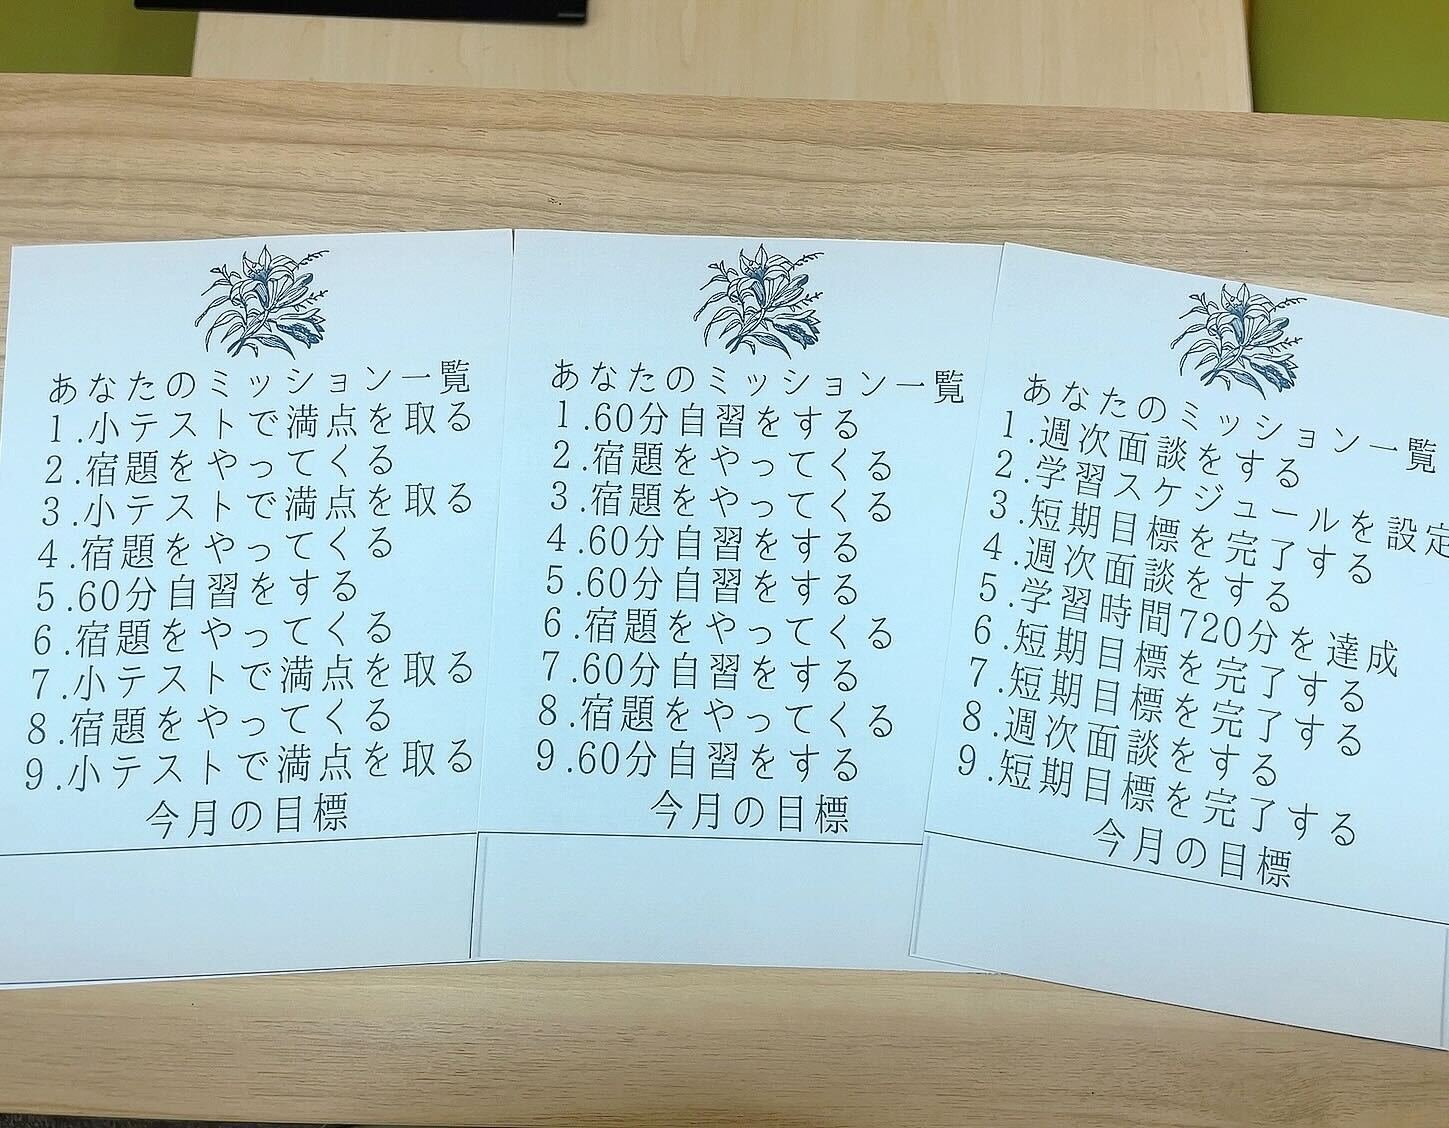 あなたのミッション一覧
1.小テストで満点を取る
2.宿題をやってくる
3.小テストで満点を取る
4.宿題をやってくる
5.60分自習をする
6.宿題をやってくる
7.小テストで満点を取る
8.宿題をやってくる
9.小テストで満点を取る
今月の目標
あなたのミッション一覧
1.60分自習をする
2.宿題をやってくる
3.宿題をやってくる
4.60分自習をする
5.60分自習をする
6.宿題をやってくる
7.60分自習をする
8.宿題をやってくる
9.60分自習をする
今月の目標
あなたのミッション一覧
1.週次面談をする
2.学習スケジュールを設定
3.短期目標を完了する
4.週次面談をする
5.学習時間720分を達成
6.短期目標を完了する
7.短期目標を完了する
8.週次面談をする
9.短期目標を完了する
今月の目標